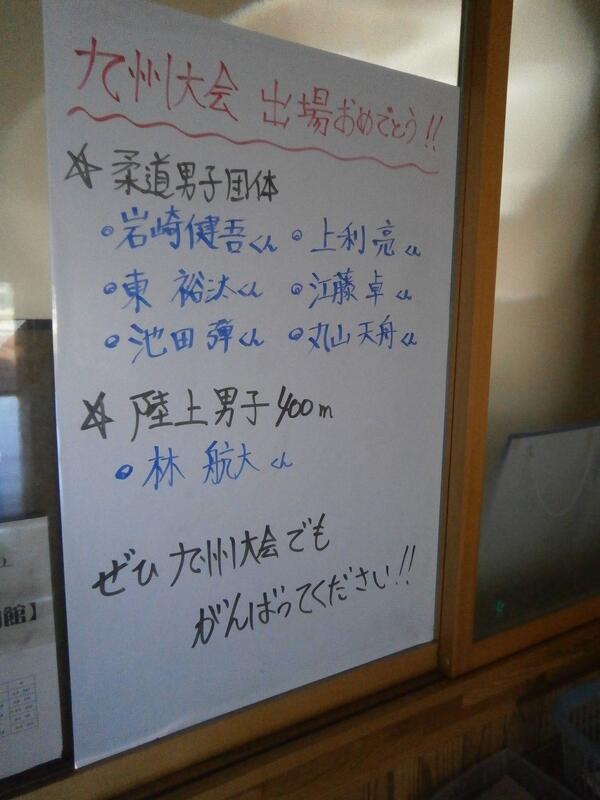 九州大会 出場おめでとう!!
☆ 柔道男子団体
・岩崎健吾くん ・上利亮くん
・東 裕汰くん ・江藤卓くん
・池田弾くん ・丸山天舟くん
☆ 陸上男子400m
・林 航大くん
ぜひ九州大会でも
がんばってください!!
館】